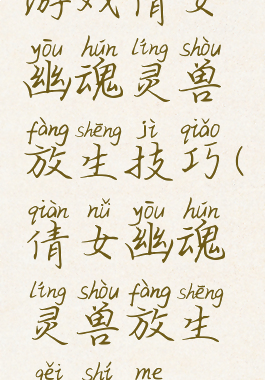 游戏倩女
yōu hún líng shòu
幽魂灵兽
fàng shēng jì qiǎo
放生技巧(
qiàn nǚ yōu hún
倩女幽魂
líng shòu fàng shēng
灵兽放生
gěi shí me